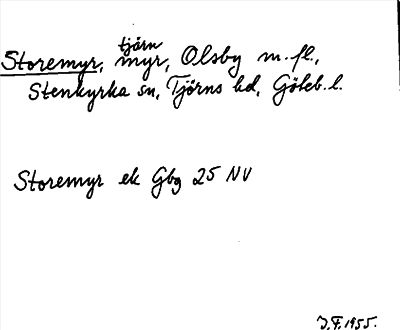 Storemyr, tjärn myr, Olsby m.fl.,
Stenkyrka sn, Tjörns hd, Göteb. l.
Storemyr ek Gbg 25 NV
J.F. 1955.